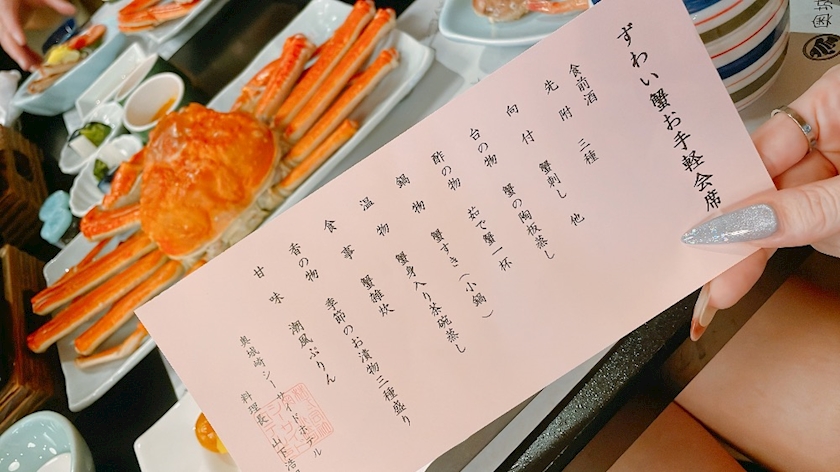 ずわい蟹お手軽会席
食前酒
先附 三種
向付 蟹刺し 他
台の物 蟹の陶板蒸し
酢の物 茹で蟹一杯
鍋物 蟹すき(小鍋)
温物 蟹身入り茶碗蒸し
食事 蟹雑炊
香の物 季節のお漬物三種盛り
甘味 潮風ぷりん
奥城崎シーサイドホテル
料理長 山下浩